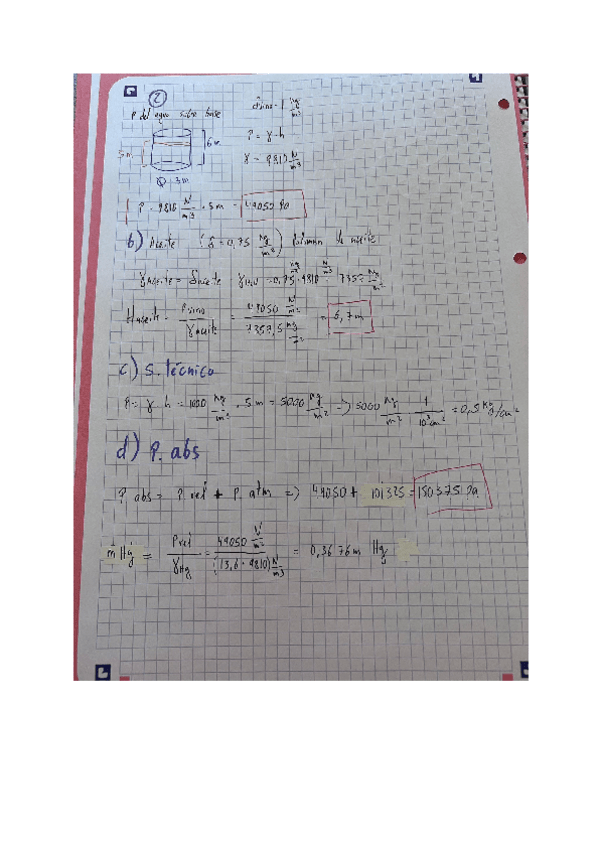 2
P del agua sobre base
5m
6m
Ø 3m
P = γ · h
γ = 9810 N/m3
P = 9810 N/m3 · 5m = 49050 Pa
b) Aceite (δ = 0,75 Kg/m2) columna de aceite
γaceite = δaceite · γH2O = 0,75 · 9810
Haceite = / γaceite = 49050 N/m2 / 7357,5 = 6,7m
c) S. técnico
P = γ · h = 1000 Kg/m3 · 5m = 5000 Kg/m2 => 5000 Kg/m2 · 1/ = 0,5 Kg/cm2
d) P. abs
P. abs = P. rel + P. atm => 49050 + 101325 = 150375 Pa
m Hg = Prel / γHg = 49050 N/m2 / (13,6 · 9810) N/m3 = 0,3676 m Hg